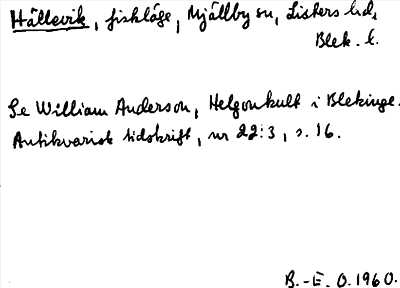 Hällevik, fiskläge, Mjällby sn, Listers hd,
Blek. l.
Se William Anderson, Helgonkult i Blekinge.
Antikvarisk tidskrift, nr 22:3, s. 16.
B.-E. O. 1960.